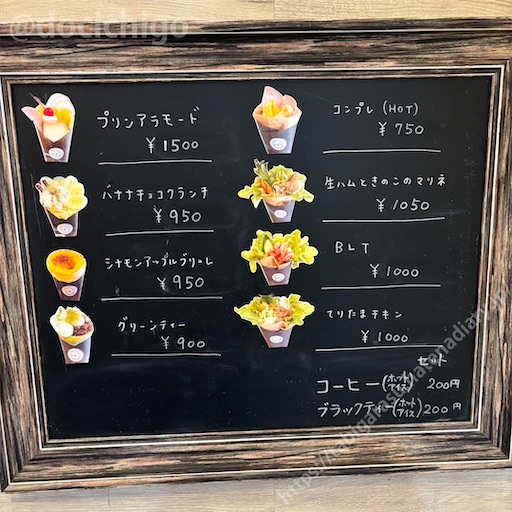 @docichigo
プリンアラモード
¥1500
バナナチョコクランチ
¥950
シナモンアップルブリュレ
¥950
グリーンティー
¥900
コンプレ (HOT)
¥750
生ハムときのこのマリネ
¥1050
BLT
¥1000
てりたまチキン
¥1000
セット
コーヒー(ホット アイス) 200円
ブラックティー(ホット アイス) 200円